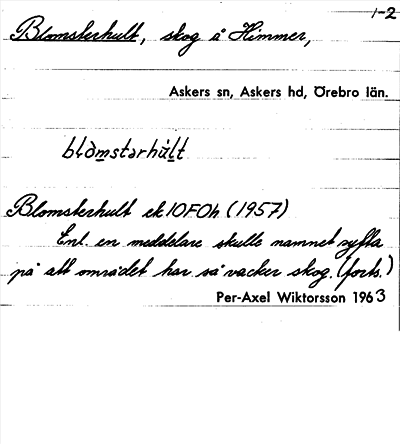 1-2
Blomsterhult, skog å Himmer,
Askers sn, Askers hd, Örebro län.
Blomsterhult ek 10F0h (1957)
Enl. en meddelare skulle namnet syfta
på att området har så vacker skog. (forts.)
Per-Axel Wiktorsson 1963